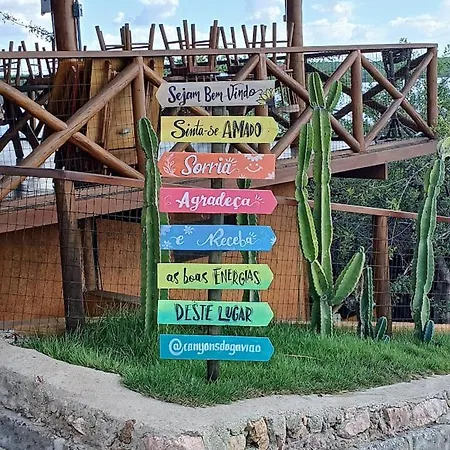 Sejam Bem Vindo
Sinta-se AMADO
Sorria
Agradeça
e Receba
as boas ENERGIAS
DESTE LUGAR
@canyonsdogaviao